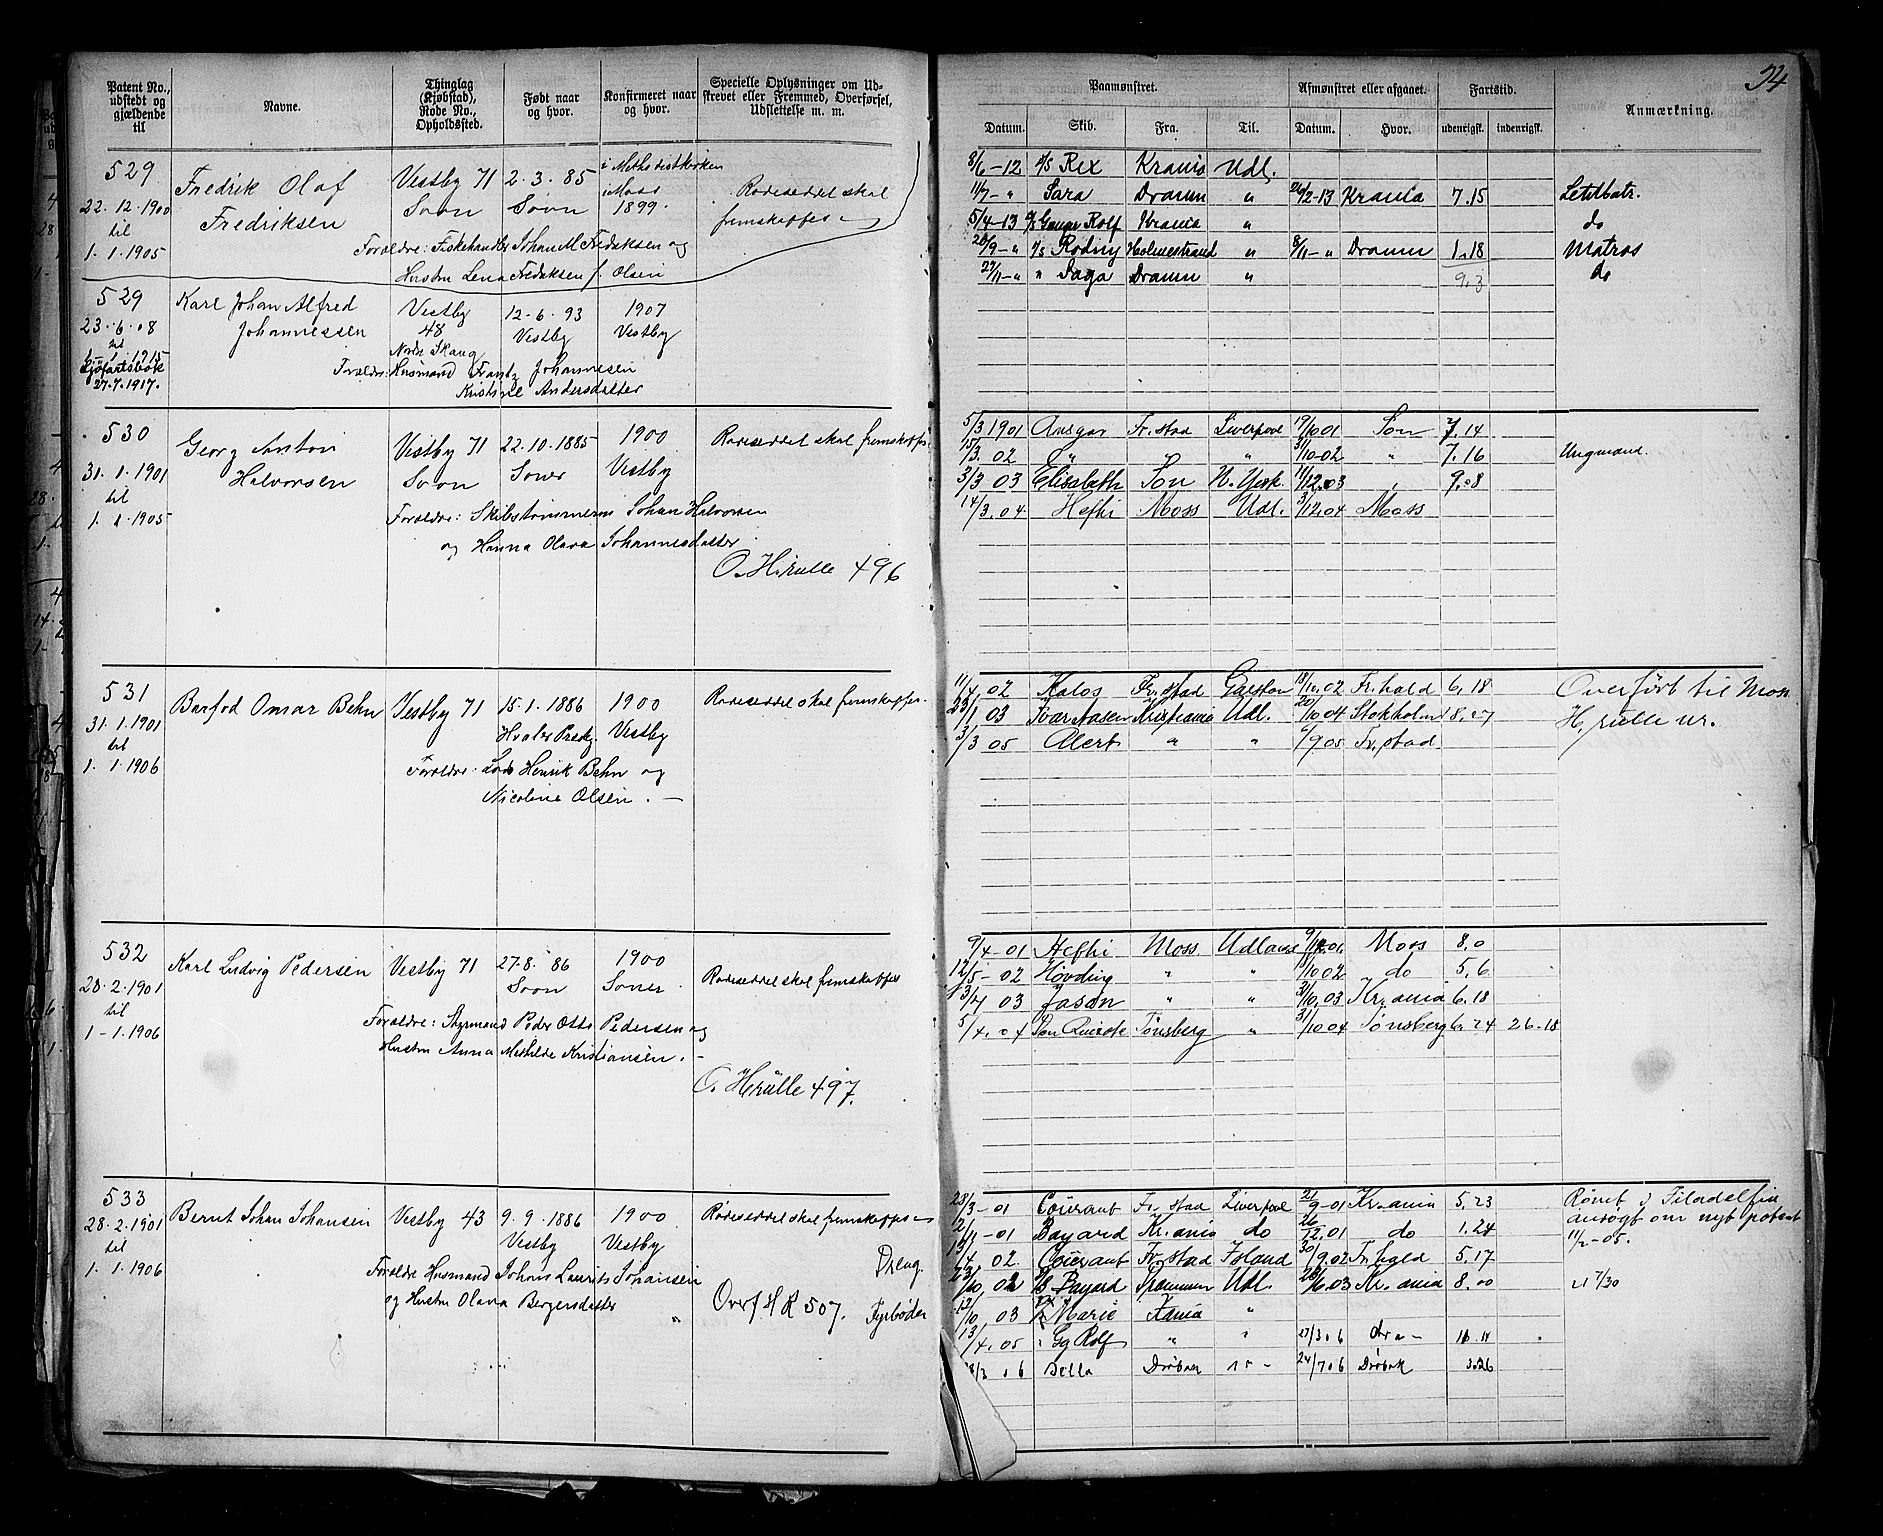 Patent No., udstedt og gjældende til
Navne.
Thinglag (Kjøbstad), Rode No., Opholdssted.
Født naar og hvor.
Konfirmeret naar og hvor.
Specielle Oplysninger om Udskrevet eller Fremmed, Overførsel, Udslettelse m. m.
529
22.12.1900
til
1.1.1905
Fredrik Olaf
Fredriksen
Vestby 71
Soon
2.3.85
Soon
i Methodistkirken
i Moss
1899.
Rodeseddel skal
fremskaffes
Forældre: Fiskehandler Johan M. Fredriksen og
Hustru Lena Fredriksen f. Olsen
529
23.6.08
til
1.1.1915
Sjøfartsbok
27.7.1917.
Karl Johan Alfred
Johannessen
Vestby
48
Nordre Skaug
12-6.93
Vestby
1907
Vestby
Forældre: Husmand Frantz Johannesen
Kristine Andersdatter
530
31.1.1901
til
1.1.1905
Georg Anton
Halvorsen
Vestby 71
Soon
22.10.1885
Soner
1900
Vestby
Rodeseddel skal fremskaffes
Forældre: Skibstømmerm Johan Halvorsen
og Hanna Olava Johannesdatter
O. H.rulle 496
531
31.1.1901
til
1.1.1906
Barfod Omar Behn
Vestby 71
15.1.1886
Hvaler Præstg.
1900
Vestby
Rodeseddel skal fremskaffes
Forældre: Lods Henrik Behn og
Nicoline Olsen.
532
28.2.1901
til
1-1.1906
Karl Ludvig Pedersen
Vestby 71
27.8.86
Soon
1900
Soner
Rodeseddel skal fremskaffes
Forældre: Styrmand Peder Otto Pedersen og
Hustru Anna Mathilde Kristiansen.
O. H.rülle 497.
533
28.2.1901
til
1.1.1906
Bernt Johan Johansen
Vestby 43
9.9.1886
Vestby
1900
Vestby
Rodeseddel skal fremskaffes
Dreng.
Forældre Husmand Johans Laurits Johansen
og Hustru Olava Bergersdatter
Overf H R 507.
Fyrbøder
94
Paamønstret.
Afmønstret eller afgaaet.
Fartstid.
Anmærkning.
Datum. Skib. Fra. Til. Datum. Hvor. udenrigsk. indenrigsk.
8/6-12 s/s Rex Krania Udl.
11/7-" Sara Dramn " 26/2-13 Krania 7.15 Letdbatr.
5/4-13 s/s Gange Rolf Krania " do
20/9-" s/s Rodny Holmestrand " 8/11-" Dramn 1.18 Matros
27/11-" " Saga Dramn " 9.3 do
5/3 1901 Ansgar Fr.stad Liverpool 19/10 01 Son 7.14
15/3.02 " " " 31/10-02 " 7.16 Ungmand.
3/3 03 Elisabeth Son N. York 11/12.03 " 9.08
14/3.04 Hefhi Moss Udl. 3/12.04 Moss
11/4.02 Kalos Fr.stad Galston 13/10.02 Fr.hald 6.18 Overført til Moss
23/1 03 Ivar Aasen Kristiania Udl. 20/10 04 Stokholm 8.07 H.rulle nr.
3/3 05 Alert " " 6/9 05 Fr.stad
9/4-01 Hefhi Moss Udland 9/12.01 Moss 8.0
12/5-02 Høvding " " 11/10 02 do 5.6
13/4 03 Jason " " 31/10.03 Kr.ania 6.18
5/4.04 Tønsberg " 31/10 04 Tønsberg 6.24 26.18
28/3-01 Coürant Fr.stad Liverpool 21/9-01 Kr.ania 5.23 Rømt i Filadelfia
12/11-01 Bayard Kr.ania do 26/12.01 do 1.24 ansøgt om nyt patent
12/4.02 Coürant Fr.stad Island 30/9.02 Fr.hald 5.17 11/2-05.
23/10.02 Bayard Drammen Udl. 28/6 03 Kr.ania 8.00 21 7/30
12/10.03 Marie Xania "
13/4.05 Gg Rolf " " 27/3 06 16.14
3.06 Bella Drøbak 24/7 06 Drøbak 3.26